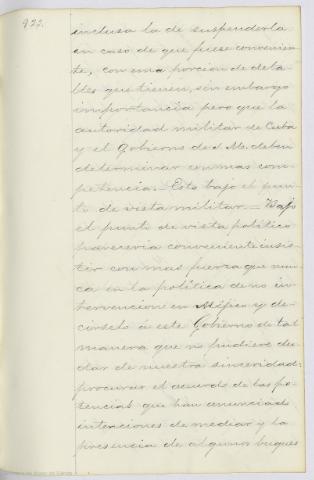 922.
inclusa la de suspenderla
en caso de que fuese convenien-
te, con una porcion de deta-
lles que tienen, sin embargo
importancia pero que la
autoridad militar de Cuba
y el Gobierno de S. M. deben
determinar con mas com-
petencia. Esto bajo el pun-
to de vista militar. — Bajo
el punto de vista político
pareceria conveniente insis-
tir con mas fuerza que nun-
ca en la política de no in-
tervencion en Méjico y de-
círselo á este Gobierno de tal
manera que no pudiese du-
dar de nuestra sinceridad:
procurar el acuerdo de las po-
tencias que han anunciado
intenciones de mediar y la
presencia de algunos buques